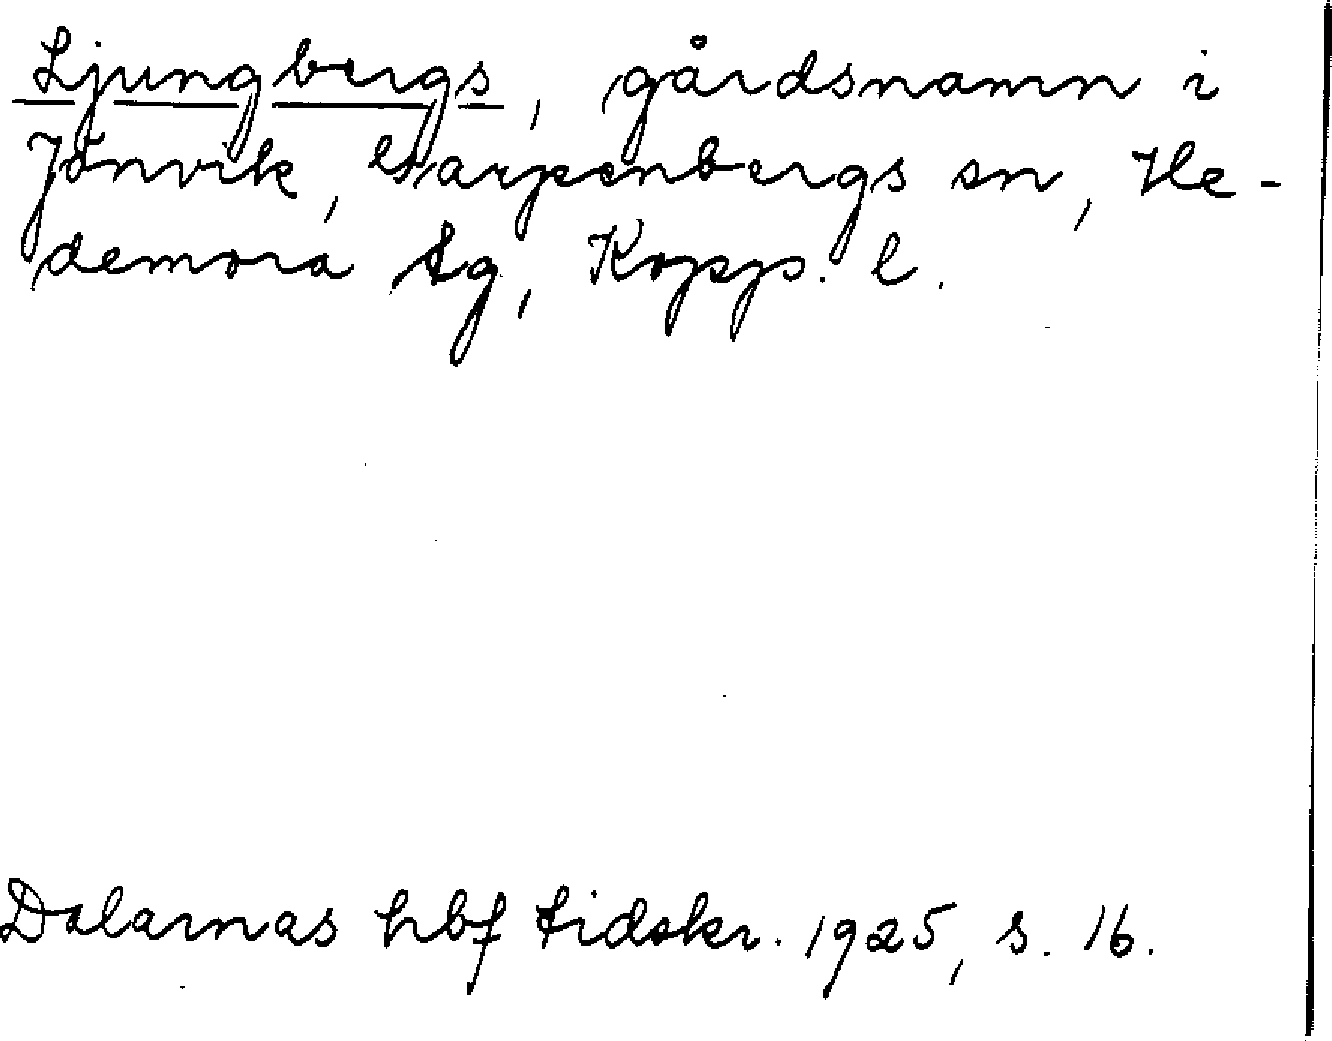 Ljungbergs, gårdsnamn i
Jönvik, Garpenbergs sn, He-
demora tg, Kopp. l.
Dalarnas hbf tidskr. 1925, s. 16.